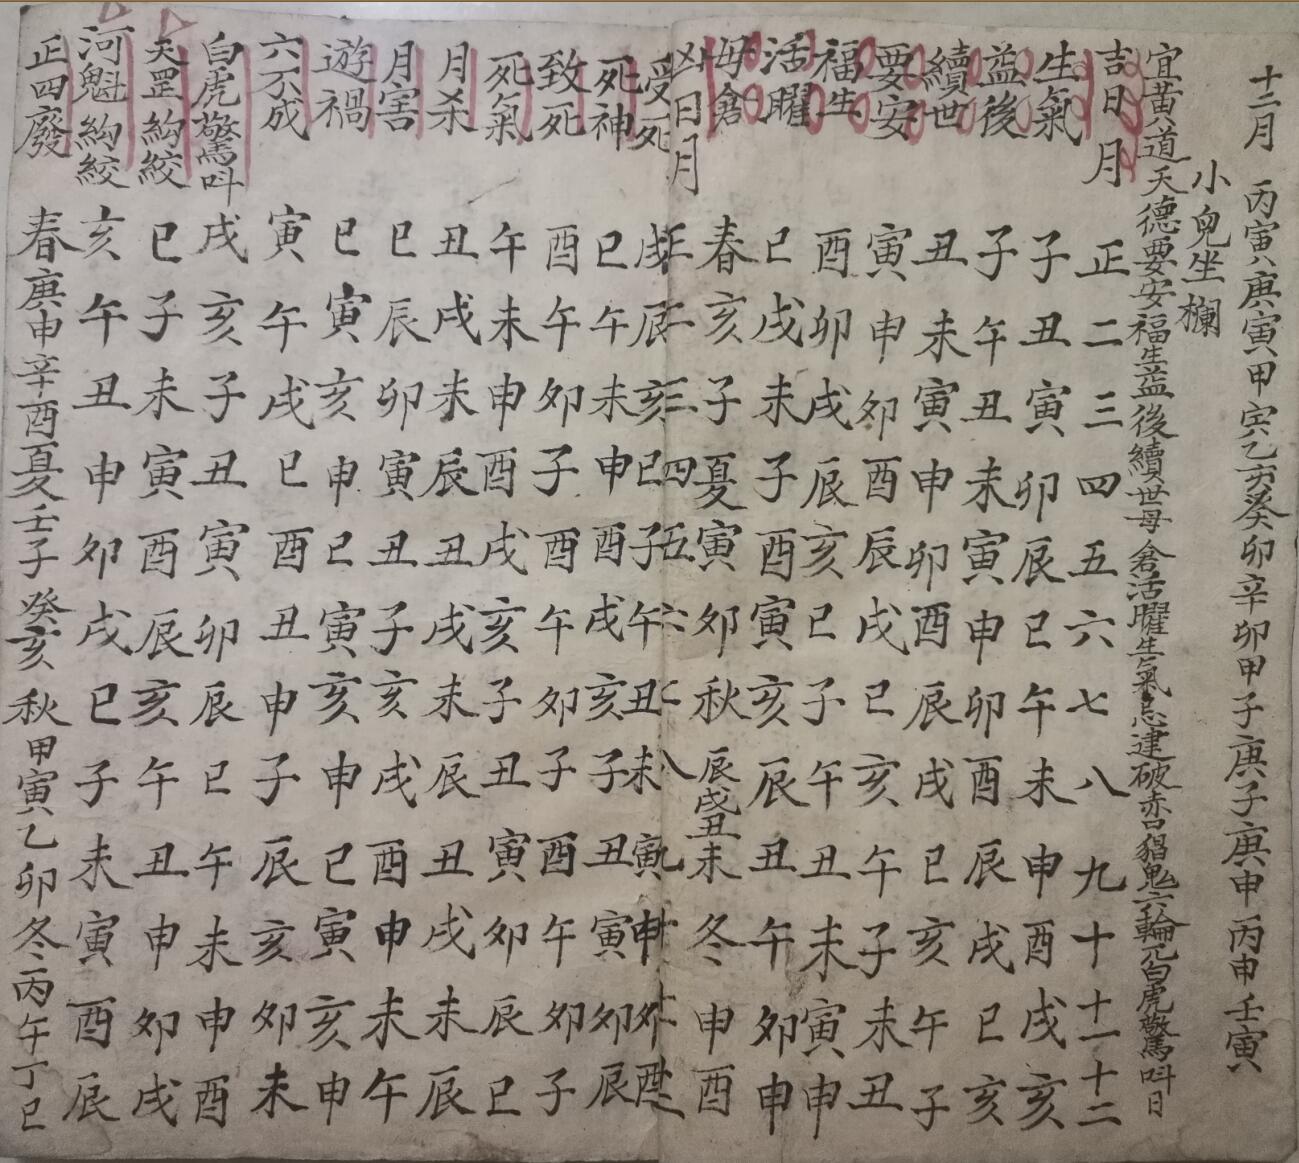 十二月 丙寅庚寅甲寅乙亥癸卯辛卯甲子庚子庚申丙申壬寅
小兒坐欄
宜黃道天德要安福生益後續世母倉活曜生氣忌建破赤口猖鬼六輪兀白虎驚叫日
吉日月 正二三四五六七八九十十一十二
生氣 子丑寅卯辰巳午未申酉戌亥
益後 子午丑未寅申卯酉辰戌巳亥
續世 丑未寅申卯酉辰戌巳亥午子
要安 寅申卯酉辰戌巳亥午子未丑
福生 酉卯戌辰亥巳子午丑未寅申
活曜 巳戌未子酉寅亥辰丑午卯申
母倉 春亥子夏寅卯秋辰戌丑未冬申酉
凶日月 正二三四五六七八九
受死 戌辰亥巳子午丑未寅申卯酉
死神 巳午未申酉戌亥子丑寅卯辰
致死 酉午卯子酉午卯子酉午卯子
死氣 午未申酉戌亥子丑寅卯辰巳
月杀 丑戌未辰丑戌未辰丑戌未辰
月害 巳辰卯寅丑子亥戌酉申未午
遊禍 巳寅亥申巳寅亥申巳寅亥申
六不成 寅午戌巳酉丑申子辰亥卯未
白虎驚叫 戌亥子丑寅卯辰巳午未申酉
天罡絢絞 巳子未寅酉辰亥午丑申卯戌
河魁絢絞 亥午丑申卯戌巳子未寅酉辰
正四廢 春庚申辛酉夏壬子癸亥秋甲寅乙卯冬丙午丁巳